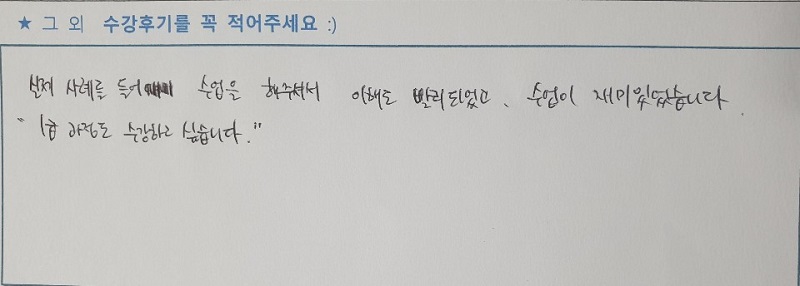 ★ 그 외 수강후기를 꼭 적어주세요 :)
실제 사례를 들어 수업을 해주셔서 이해도 빨리되었고, 수업이 재미있었습니다.
"1급 과정도 수강하고 싶습니다."